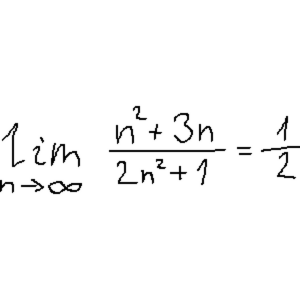 lim n→∞ n²+3n / 2n²+1 = 1/2